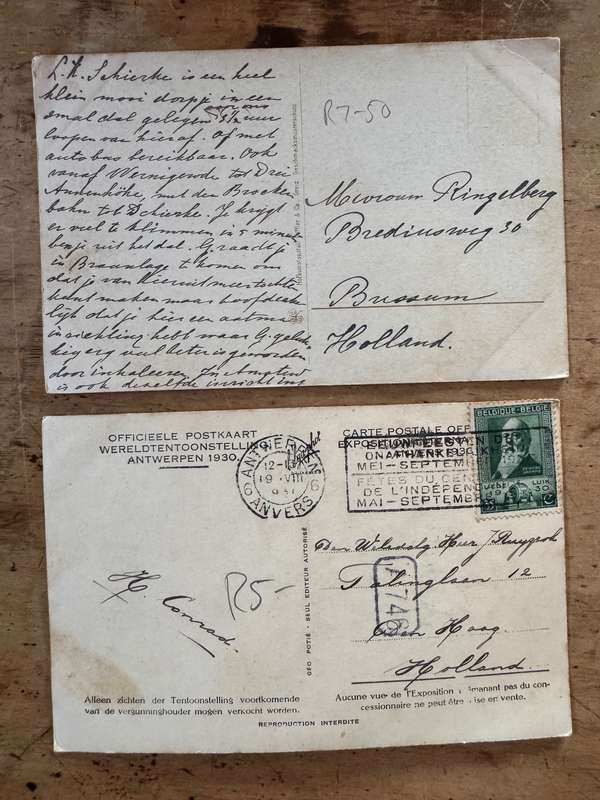 L. H. Schierke is een heel
klein mooi dorpje in een
smal dal gelegen 3½ uur
loopen van hieraf. Of met
autobus bereikbaar. Ook
vanaf Wernigerode tot Drei
Annenhöhe, met den Brocken
bahn tot Schierke. Je krijgt
er veel te klimmen, in 5 minuten
ben je uit het dal. G. raadt je
in Braunlage te komen om
dat je van hieruit meer tochten
kunt maken maar hoofdzake
lijk dat je hier een
inrichting hebt waar G. geluk
kig erg veel beter is geworden
door inhaleeren. In
is ook dezelfde inrichting
R7-50
Mevrouw Ringelberg
Brediusweg 30
Bussum
Holland.
OFFICIEELE POSTKAART
WERELDTENTOONSTELLING
ANTWERPEN 1930.
CARTE POSTALE OFF
EXPOSITION
ANTWERPEN
12-
19 VIII
ANVERS
6
6
ONAFHANKELIJKH
MEI-SEPTEM
FÊTES DU CEN
DE L'INDÉPEND
MAI-SEPTEMB
BELGIQUE-BELGIË
LUIK
19 30
35 C
Den Weledelg. Heer J. Ruyprok
Talinglaan 12
Den Haag
Holland.
A746
H Conrad.
R5-
GEO POTIÉ - SEUL EDITEUR AUTORISÉ
Alleen zichten der Tentoonstelling voortkomende
van de vergunninghouder mogen verkocht worden.
Aucune vue de l'Exposition émanant pas du con-
cessionnaire ne peut être mise en vente.
REPRODUCTION INTERDITE